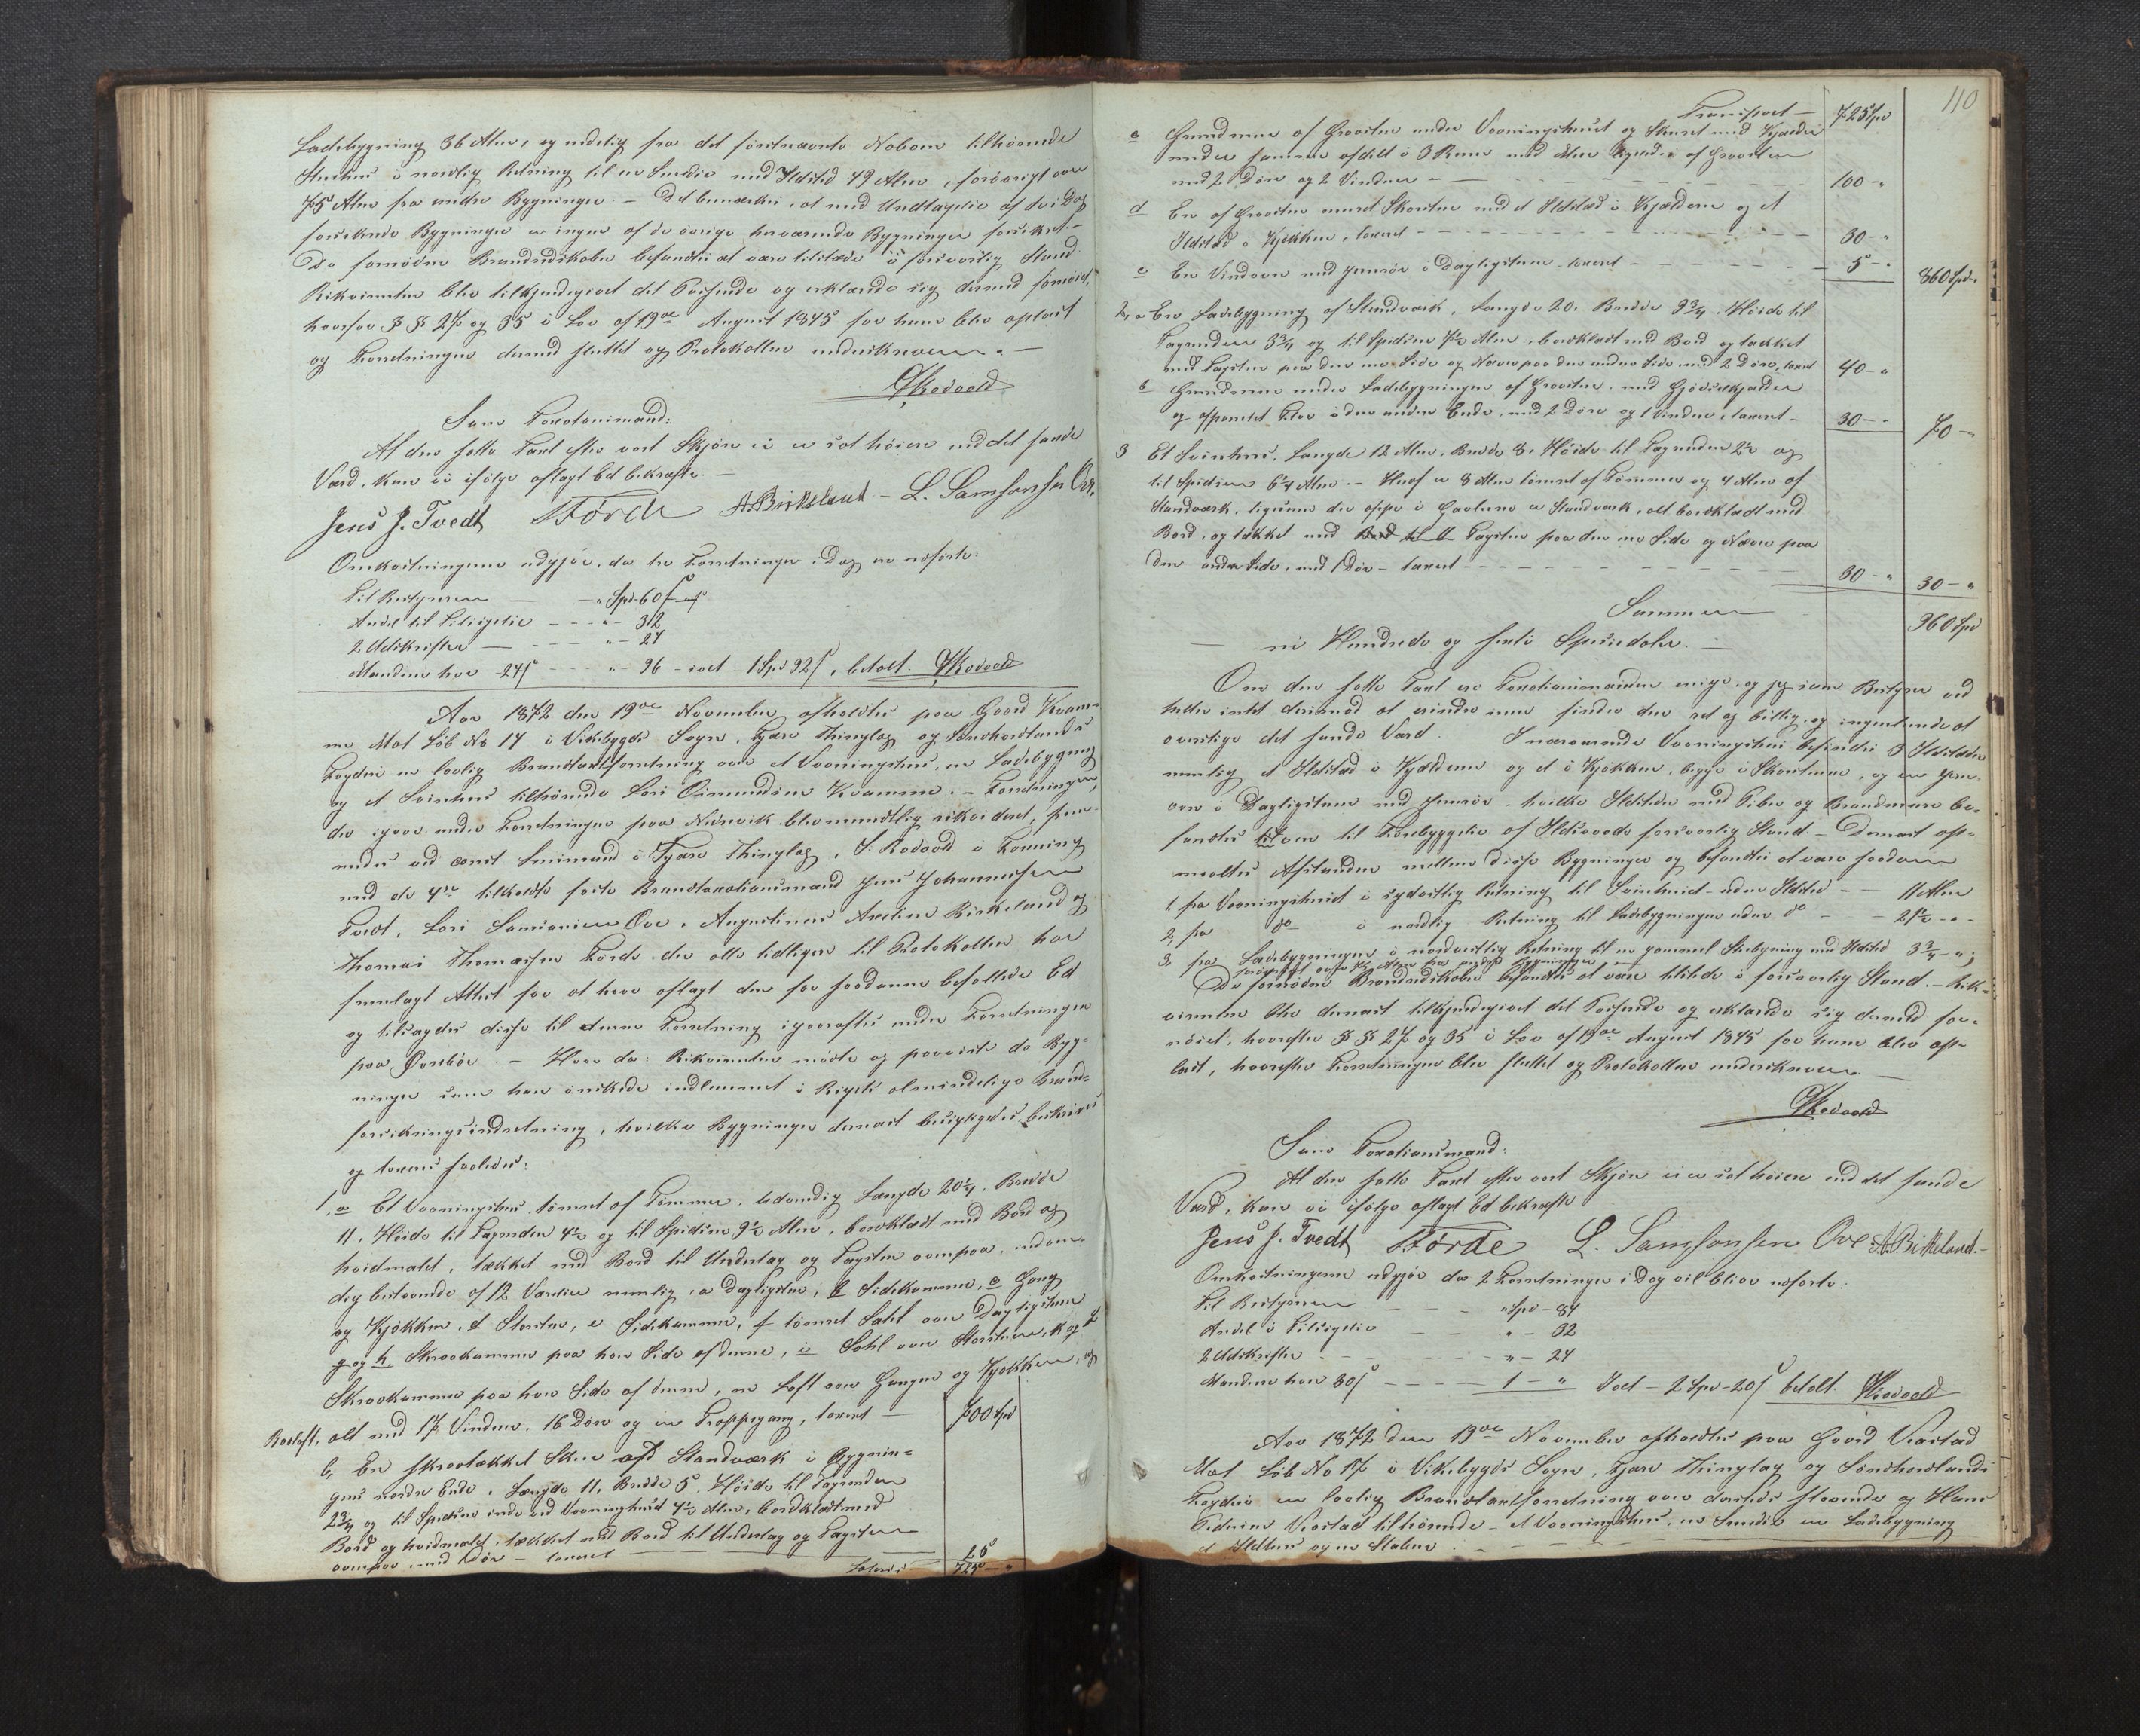 Ladebygning 36 Alen, og endelig fra det förstnævnte Naboen tilhörende
Stuehus i nordlig Retning til en Smedie med Ildsted 49 Alen, forövrigt over
75 Alen fra andre Bygninger. – Det bemærkes, at med Undtagelse af de i Dag
forsikrede Bygninger er ingen af de övrige herværende Bygninger forsikret. –
De fornödne Brandredskaber befandtes at være tilstede i forsvarlig Stand.
Rekvirenten blev tilkjendegivet det Passerede og erklærede sig dermed fornöiet,
hvorfor § § 27 og 35 i Lov af 19de August 1845 for ham blev oplæst
og Forretningen dermed sluttet og Protokollen underskreven. –
SRodvold
Som Taxationsmænd:
At den satte Taxt efter vort Skjön ei er sat höiere end det sande
Værd, kan vi ifölge aflagt Ed bekræfte. –
Jens J. Tvedt TTörde A. Birkeland – L. Samsonsen Ove,
Omkostningerne udgjör, da tre Forretninger i Dag er udförte:
Til Bestyreren – " Spd 60 s
Andel til Tilsigelse – – " – 32
2 Udskrifter – – " – 24
Mændene hver 24 s – – " – 96 – ialt – 1 Spd 92 s, betalt. SRodvold
Aar 1872 den 19de November afholdtes paa Gaard Kvam-
me Mat. Löb. No 14 i Vikebygds Sogn, Fjære Thinglag og Söndhordlands
Fogderi en lovlig Brandtaxtforretning over et Vaaningshus, en Ladebygning
og et Svinhus tilhörende Lars Osmundsen Kvamme. – Forretningen,
der igaar under Forretningen paa Nedrevik blev mundtlig rekvireret, frem-
medes ved constt Lensmand i Fjære Thinglag, S. Rodvold i Forening
med de 4re tilkaldte faste Brandtaxationsmænd Jens Johannessen
Tvedt, Lars Samsonsen Ove, Augustinus Axelsen Birkeland og
Thomas Thomassen Förde der alle tidligere til Protokollen har
fremlagt Attest for at have aflagt den for saadanne befalede Ed
og tilsagdes disse til denne Forretning igaaraftes under Forretningen
paa Övrebö. – Hvor da: Rekvirenten mödte og paaviste de Byg-
ninger som han önskede indlemmet i Rigets almindelige Brand-
forsikringsindretning, hvilke Bygninger dernæst besigtigedes, beskrives
og taxeres saaledes:
1, a Et Vaaningshus, tömret af Tömmer. Udvendig Længde 20¼, Bredde
11, Höide til Tagrenden 4½ og til Spidsen 9½ Alen, bordklædt med Bord og
hvidmalet, tækket med Bord til Underlag og Tagsten ovenpaa, indven-
dig bestaaende af 12 Værelser nemlig, a Dagligstue, b Sidekammer, c Gang
og Kjökken, d Storstue, e Sidekammer, f tömret Sahl over Dagligstuen
g og h Skraakammer paa hver Side af denne, i Sahl over Storstuen, k og l
Skraakammer paa hver Side af denne, en Loft over Gangen og Kjökken, og
Rosloft, alt med 17 Vinduer, 16 Döre og en Trappegang, taxeret – 700 Spd
b, En skraatækket Skur af Standværk i Bygnin-
gens nordre Ende, Længde 11, Bredde 5, Höide til Tagrenden
2¾ og til Spidsen inde ved Vaaninghuset 4½ Alen, bordklædt med
Bord og hvidmalet, tækket med Bord til Underlag og Tagsten
ovenpaa, med 1 Dör – taxeret – 25
Lateris – 725 – "
110
Transport – 725 Spd
c Grundmur af Graasten under Vaaningshuset og Skuret med Kjælder
under samme afdelt i 3 Rum med Mur af Graasten
med 2 Döre og 2 Vinduer – 100 – "
d En af Graasten muret Skorsten med et Ildsted i Kjælderen og et
Ildsted i Kjökken, taxeret – 30 – "
e En Vindovn med Jernrör i Dagligstuen taxeret – 5 – " 860 Spd.
2, a En Ladebygning af Standværk, Længde 20, Bredde 9¾, Höide til
Tagrenden 3¾ og til Spidsen 7½ Alen, bordklædt med Bord og tækket
med Tagsten paa den ene Side og Næver paa den anden Side, med 2 Döre, taxeret 40 – "
b Grundmur under Ladebygningen af Graasten, med Gjödselkjælder
og Flor i den anden Ende, med 2 Döre og 1 Vindue, taxeret – 30 – " 70 – "
3 Et Svinhus, Længde 12 Alen, Bredde 8, Höide til Tagrenden 2½ og
til Spidsen 6¼ Alen. – Heraf er 8 Alen tömret af Tömmer og 4 Alen af
Standværk, ligesom der oppe i Gavlene er Standværk, alt bordklædt med
Bord, og tækket med Bord til U Tagsten paa den ene Side og Næver paa
den anden Side, med 1 Dör – taxeret – 30 – " 30 – "
Summa 960 Spd
– ni Hundrede og sexti Speciedaler. –
Om den satte Taxt ere Taxationsmændene enige, og jeg som Bestyrer ved
heller intet derimod at erindre men finder den ret og billig, og ingenlunde at
overstige det sande Værd. I nærværende Vaaningshus befindes 3 Ildsteder
nemlig et Ildsted i Kjælderen og et i Kjökken, begge i Skorstenen, og en Jern-
ovn i Dagligstuen med Jernrör, hvilke Ildsteder med Piber og Brandmure be-
fandtes at være til Forebyggelse af Ildsvaade forsvarlig Stand. – Dernæst op-
maaltes Afstanden mellem disse Bygninger og befandtes at være saadan
1, fra Vaaningshuset i sydostlig Retning til Svinhuset uden Ildsted – – 11 Alen
2, fra do i nordlig Retning til Ladebygningen uden do – – 21½ – "
3, fra Ladebygningen i nordvestlig Retning til en gammel Stuebygning med Ildsted 3¾ – " ;
forövrigt over 75 Alen fra andre Bygninger.
De fornödne Brandredskaber befandtes at være tilstede i forsvarlig Stand. – Rek-
virenten blev dernæst tilkjendegivet det Passerede og erklærede sig dermed for-
nöiet, hvorefter § § 27 og 35 i Lov af 19de August 1845 for ham blev op-
læst, hvorefter Forretningen blev sluttet og Protokollen underskreven. –
SRodvold
Som Taxationsmænd:
At den satte Taxt efter vort Skjön ei er sat höiere end det sande
Værd, kan vi ifölge aflagt Ed bekræfte
Jens J. Tvedt TTörde L. Samsonsen Ove A. Birkeland. –
Omkostningerne udgjör da 2 Forretninger i Dag vil blive udförte:
Til Bestyreren – " Spd – 84
Andel i Tilsigelse – " – 32
2 Udskrifter – " – 24
Mændene hver 30 s – 1 – " Ialt – 2 Spd – 20 s betalt. SRodvold
Aar 1872 den 19de November afholdtes paa Gaard Viestad
Mat. Löb. No 17 i Vikebygds Sogn, Fjære Thinglag og Söndhordlands
Fogderi en lovlig Brandtaxtforretning over dersteds staaende og Hans
Viestad tilhörende – et Vaaningshus, en Smedie en Ladebygning
et Ildhus og en Stabur –